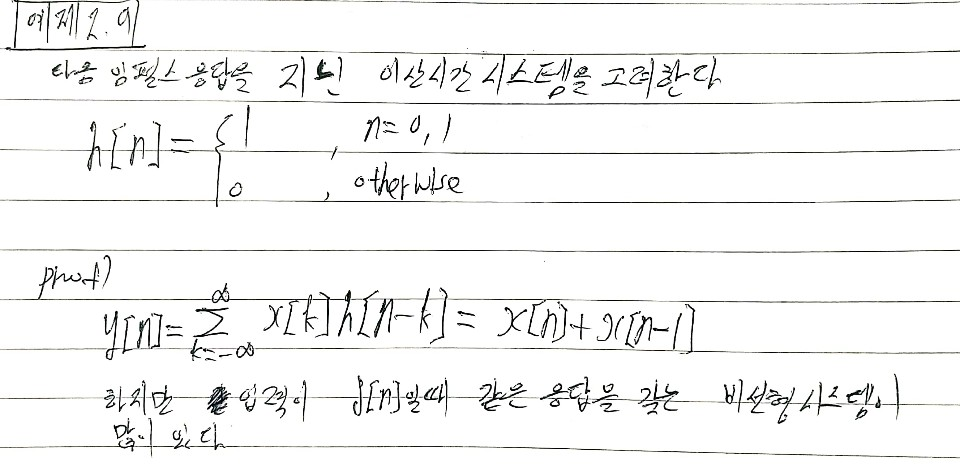 예제 2.9
다음 임펄스 응답을 지닌 이산시간 시스템을 고려한다
h[n] = { 1 , n = 0, 1
0 , otherwise
proof)
y[n] = ∑_{k=-∞}^{∞} x[k] h[n-k] = x[n] + x[n-1]
하지만 입력이 δ[n]일때 같은 응답을 갖는 비선형 시스템이
많이 있다